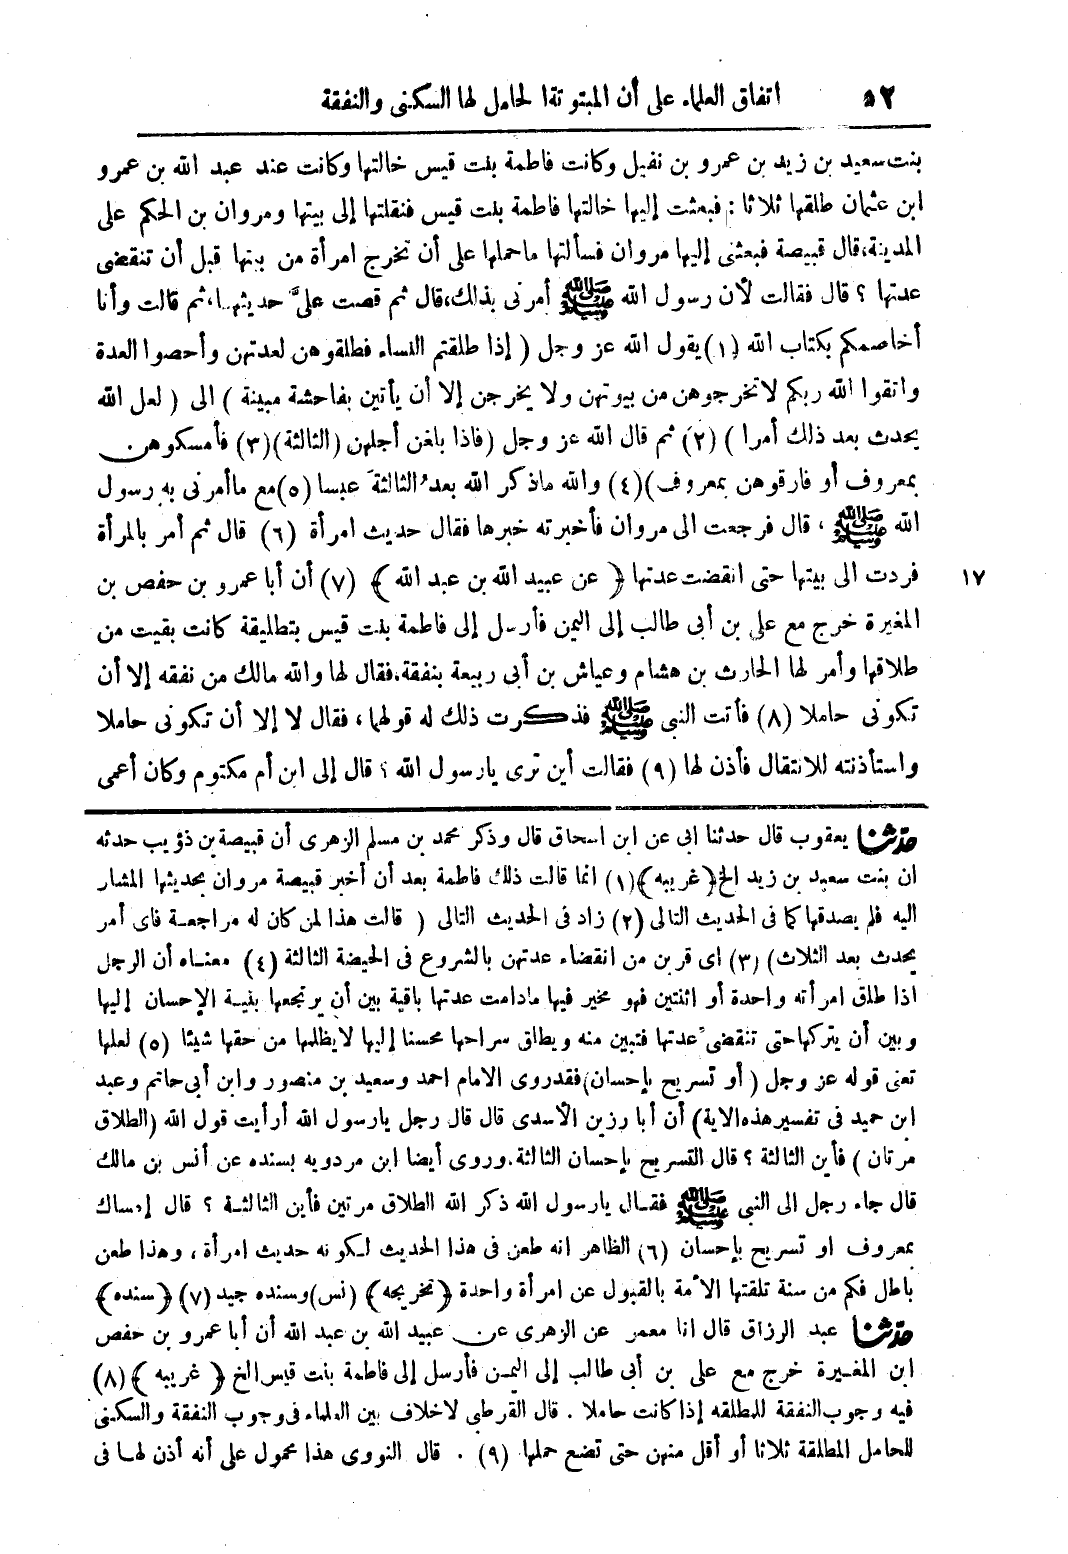 ٥٢ اتفاق العلماء على أن المبتوتة الحامل لها السكنى والنفقة
بنت سعيد بن زيد بن عمرو بن نفيل وكانت فاطمة بنت قيس خالتها وكانت عند عبد الله بن عمرو
ابن عثمان طلقها ثلاثا : فبعثت إليها خالتها فاطمة بنت قيس فنقلتها إلى بيتها ومروان بن الحكم على
المدينة،قال قبيصة فبعثنى إليها مروان فسألتها ماحملها على أن تخرج امرأة من بيتها قبل أن تنقضى
عدتها ؟ قال فقالت لأن رسول الله ﷺ أمرنى بذلك،قال ثم قصت علىَّ حديثها،ثم قالت وأنا
أخاصمكم بكتاب الله (١) يقول الله عز وجل ( إذا طلقتم النساء فطلقوهن لعدتهن وأحصوا العدة
واتقوا الله ربكم لاتخرجوهن من بيوتهن ولا يخرجن إلا أن يأتين بفاحشة مبينة ) الى ( لعل الله
يحدث بعد ذلك أمرا ) (٢) ثم قال الله عز وجل (فاذا بلغن أجلهن (الثالثة)(٣) فأمسكوهن
بمعروف أو فارقوهن بمعروف)(٤) والله ماذكر الله بعد الثالثة حبسا (٥)مع ماأمرنى به رسول
الله ﷺ ، قال فرجعت الى مروان فأخبرته خبرها فقال حديث امرأة (٦) قال ثم أمر بالمرأة
فردت الى بيتها حتى انقضت عدتها ﴿ عن عبيد الله بن عبد الله ﴾ (٧) أن أبا عمرو بن حفص بن ١٧
المغيرة خرج مع علي بن أبى طالب إلى اليمن فأرسل إلى فاطمة بنت قيس بتطليقة كانت بقيت من
طلاقها وأمر لها الحارث بن هشام وعياش بن أبى ربيعة بنفقة،فقال لها والله مالك من نفقه إلا أن
تكونى حاملا (٨) فأتت النبى ﷺ فذكرت ذلك له قولهما ، فقال لا إلا أن تكونى حاملا
واستأذنته للانتقال فأذن لها (٩) فقالت أين ترى يارسول الله ؟ قال إلى ابن أم مكتوم وكان أعمى
حدّثنا يعقوب قال حدثنا ابى عن ابن اسحاق قال وذكر محمد بن مسلم الزهرى أن قبيصة بن ذؤيب حدثه
ان بنت سعيد بن زيد الخ﴿غريبه﴾(١) انما قالت ذلك فاطمة بعد أن أخبر قبيصة مروان بحديثها المشار
اليه فلم يصدقها كما فى الحديث التالى (٢) زاد فى الحديث التالى ( قالت هذا لمن كان له مراجعة فاى أمر
يحدث بعد الثلاث) (٣) اى قربن من انقضاء عدتهن بالشروع فى الحيضة الثالثة (٤) معناه أن الرجل
اذا طلق امرأته واحدة أو اثنتين فهو مخير فيها مادامت عدتها باقية بين أن يرتجعها بنية الإحسان إليها
وبين أن يتركها حتى تنقضى عدتها فتبين منه ويطلق سراحها محسنا إليها لايظلمها من حقها شيئا (٥) لعلها
تعنى قوله عز وجل ( أو تسريح بإحسان)فقدروى الامام احمد وسعيد بن منصور وابن أبى حاتم وعبد
ابن حميد فى تفسير هذه الاية) أن أبا رزين الأسدى قال قال رجل يارسول الله أرأيت قول الله (الطلاق
مرتان ) فأين الثالثة ؟ قال التسريح بإحسان الثالثة.وروى أيضا ابن مردويه بسنده عن أنس بن مالك
قال جاء رجل الى النبى ﷺ فقال يارسول الله ذكر الله الطلاق مرتين فأين الثالثة ؟ قال إمساك
بمعروف او تسريح بإحسان (٦) الظاهر انه طعن فى هذا الحديث لكونه حديث امرأة ، وهذا طعن
باطل فكم من سنة تلقتها الأمة بالقبول عن امرأة واحدة ﴿تخريجه﴾ (نس)وسنده جيد (٧) ﴿سنده﴾
حدّثنا عبد الرزاق قال انا معمر عن الزهرى عن عبيد الله بن عبد الله أن أبا عمرو بن حفص
ابن المغيرة خرج مع على بن أبى طالب إلى اليمن فأرسل إلى فاطمة بنت قيس الخ ﴿ غريبه ﴾ (٨)
فيه وجوب النفقة للمطلقه إذا كانت حاملا . قال القرطبى لاخلاف بين العلماء فى وجوب النفقة والسكنى
للحامل المطلقة ثلاثا أو أقل منهن حتى تضع حملها (٩) . قال النووى هذا محمول على أنه أذن لها فى